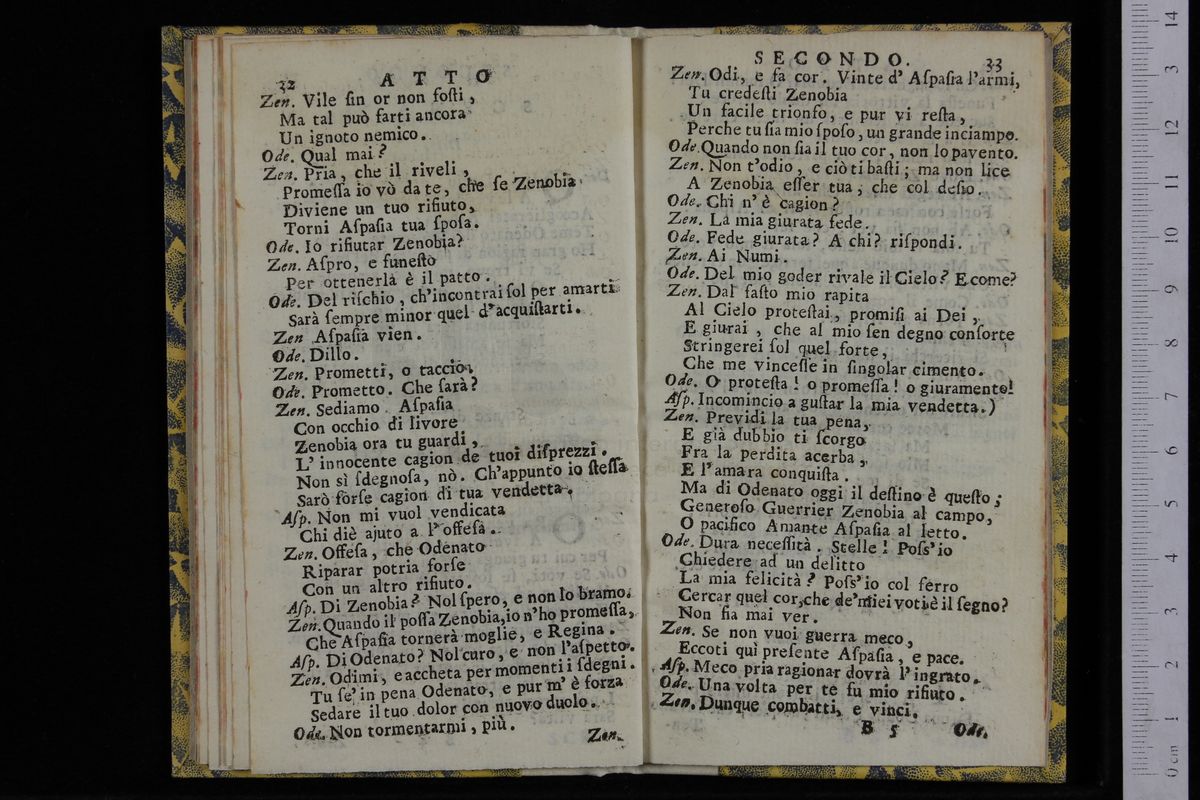 32 ATTO
Zen. Vile ſin or non foſti,
Ma tal può farti ancora
Un ignoto nemico.
Ode. Qual mai?
Zen. Pria, che il riveli,
Promeſſa io vò da te, che ſe Zenobia
Diviene un tuo rifiuto,
Torni Aſpaſia tua ſpoſa.
Ode. Io rifiutar Zenobia?
Zen. Aſpro, e funeſto
Per ottenerla è il patto.
Ode. Del riſchio, ch'incontrai ſol per amarti
Sarà ſempre minor quel d'acquiſtarti.
Zen Aſpaſia vien.
Ode. Dillo.
Zen. Prometti, o taccio.
Ode. Prometto. Che ſarà?
Zen. Sediamo. Aſpaſia
Con occhio di livore
Zenobia ora tu guardi,
L' innocente cagion de tuoi diſprezzi.
Non sì ſdegnoſa, nò. Ch'appunto io ſteſſa
Sarò forſe cagion di tua vendetta.
Aſp. Non mi vuol vendicata
Chi diè ajuto a l'offeſa.
Zen. Offeſa, che Odenato
Riparar potria forſe
Con un altro rifiuto.
Aſp. Di Zenobia? Nol ſpero, e non lo bramo.
Zen. Quando il poſſa Zenobia, io n'ho promeſſa,
Che Aſpaſia tornerà moglie, e Regina.
Aſp. Di Odenato? Nol curo, e non l'aſpetto.
Zen. Odimi, e accheta per momenti i ſdegni.
Tu ſe' in pena Odenato, e pur m' è forza
Sedare il tuo dolor con nuovo duolo.
Ode. Non tormentarmi, più.
Zen.
SECONDO. 33
Zen. Odi, e fa cor. Vinte d' Aſpaſia l'armi,
Tu credeſti Zenobia
Un facile trionfo, e pur vi reſta,
Perche tu ſia mio ſpoſo, un grande inciampo.
Ode. Quando non ſia il tuo cor, non lo pavento.
Zen. Non t'odio, e ciò ti baſti; ma non lice
A Zenobia eſſer tua, che col deſio.
Ode. Chi n' è cagion?
Zen. La mia giurata fede.
Ode. Fede giurata? A chi? riſpondi.
Zen. Ai Numi.
Ode. Del mio goder rivale il Cielo? E come?
Zen. Dal faſto mio rapita
Al Cielo proteſtai, promiſi ai Dei,
E giurai, che al mio ſen degno conſorte
Stringerei ſol quel forte,
Che me vinceſſe in ſingolar cimento.
Ode. O proteſta! o promeſſa! o giuramento!
Aſp. Incomincio a guſtar la mia vendetta.)
Zen. Previdi la tua pena,
E già dubbio ti ſcorgo
Fra la perdita acerba,
E l'amara conquiſta.
Ma di Odenato oggi il deſtino è queſto;
Generoſo Guerrier Zenobia al campo,
O pacifico Amante Aſpaſia al letto.
Ode. Dura neceſſità. Stelle! Poſs'io
Chiedere ad un delitto
La mia felicità? Poſs'io col ferro
Cercar quel cor, che de' miei voti è il ſegno?
Non fia mai ver.
Zen. Se non vuoi guerra meco,
Eccoti quì preſente Aſpaſia, e pace.
Aſp. Meco pria ragionar dovrà l'ingrato.
Ode. Una volta per te fu mio rifiuto.
Zen. Dunque combatti, e vinci.
B 5 Ode.
0 cm 1 2 3 4 5 6 7 8 9 10 11 12 3 14